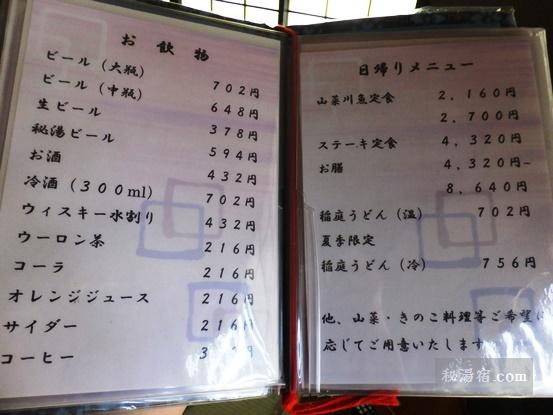 お飲物
ビール（大瓶） 702円
ビール（中瓶） 648円
生ビール 378円
秘湯ビール 594円
お酒 432円
冷酒（300ml） 702円
ウィスキー水割り 432円
ウーロン茶 216円
コーラ 216円
オレンジジュース 216円
サイダー 216円
コーヒー
日帰りメニュー
山菜川魚定食 2,160円
2,700円
ステーキ定食 4,320円
お膳 4,320円~
8,640円
稲庭うどん（温） 702円
夏季限定
稲庭うどん（冷） 756円
他、山菜・きのこ料理等ご希望に
応じてご用意いたします
秘湯宿.com